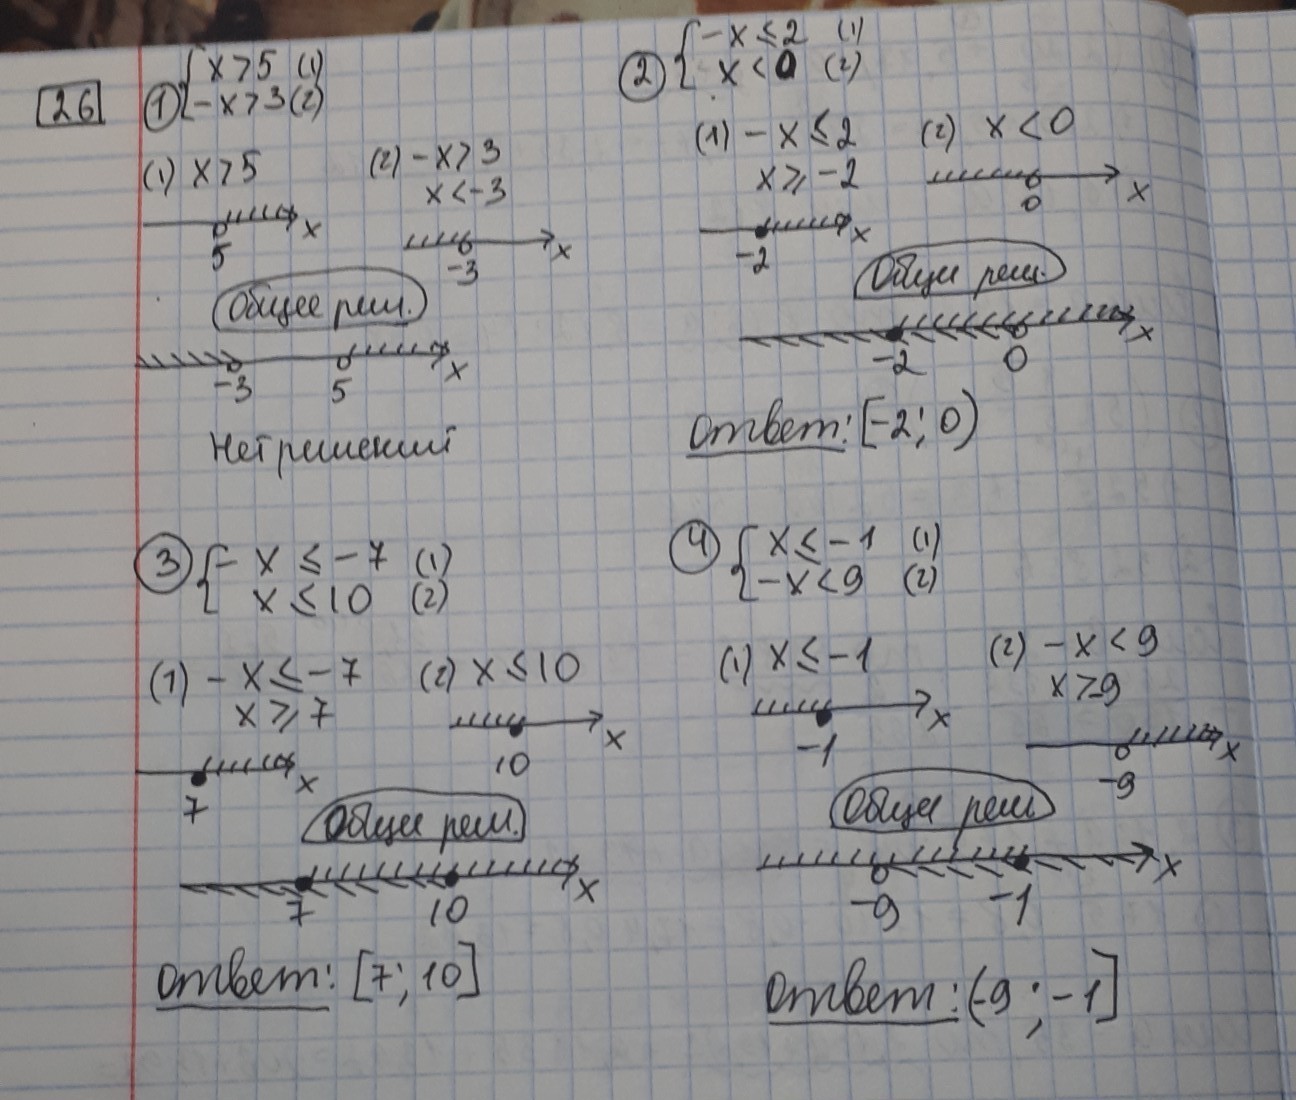 26
1 { x > 5 (1)
- x > 3 (2)
(1) x > 5
(2) - x > 3
x < -3
5 x
-3 x
Общее реш.
-3 5 x
Нет решений
2 { - x ≤ 2 (1)
x < 0 (2)
(1) - x ≤ 2
x ≥ -2
(2) x < 0
-2 x
0 x
Общее реш.
-2 0 x
Ответ: [-2; 0)
3 { - x ≤ -7 (1)
x ≤ 10 (2)
(1) - x ≤ -7
x ≥ 7
(2) x ≤ 10
7 x
10 x
Общее реш.
7 10 x
Ответ: [7; 10]
4 { x ≤ -1 (1)
- x < 9 (2)
(1) x ≤ -1
(2) - x < 9
x > -9
-1 x
-9 x
Общее реш
-9 -1 x
Ответ: (-9; -1]